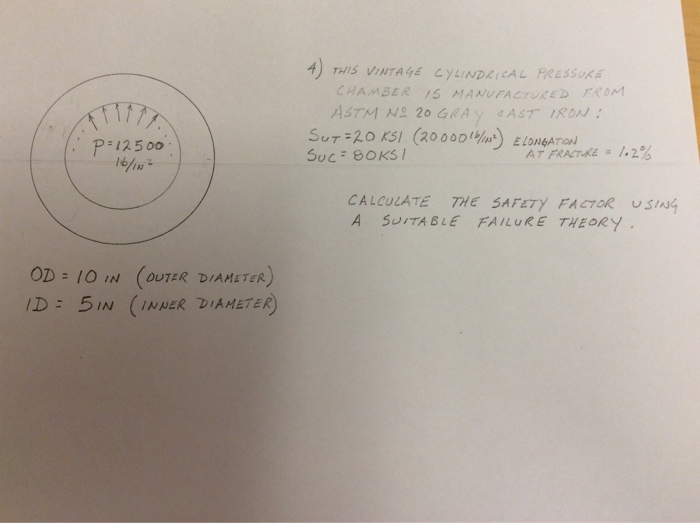 4) THIS VINTAGE CYLINDRICAL PRESSURE
CHAMBER IS MANUFACTURED FROM
ASTM Nº 20 GRAY CAST IRON:
SUT = 20 KSI (20000 lb/in²) ELONGATION
SUC = 80KSI AT FRACTURE = 1.2%
CALCULATE THE SAFETY FACTOR USING
A SUITABLE FAILURE THEORY.
P=12500
lb/in²
OD = 10 IN (OUTER DIAMETER)
ID = 5 IN (INNER DIAMETER)